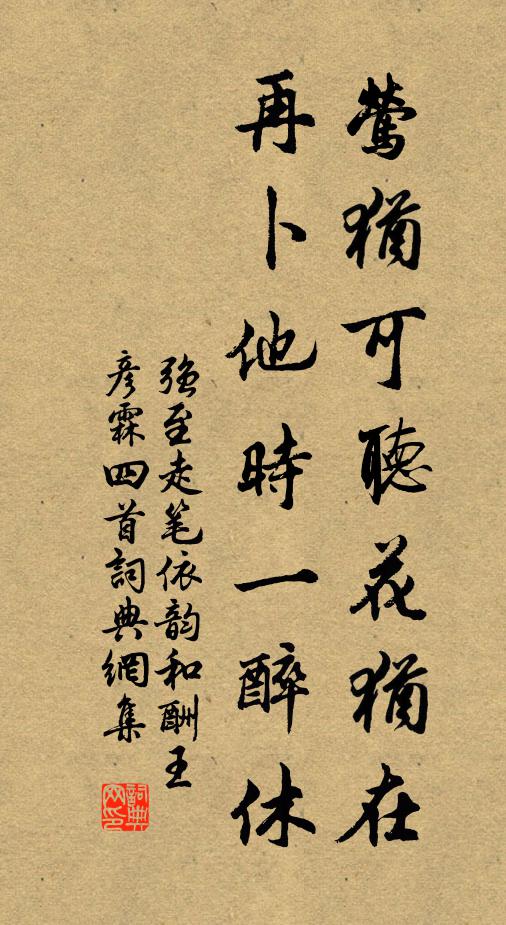 鶯猶可聽花猶在
再卜他時一醉休
強至走笔依韵和酬王
彦霖四首詞典網集
詞典网印